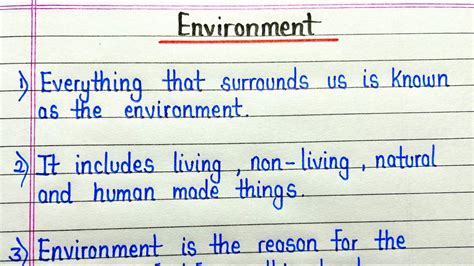 Environment
1) Everything that surrounds us is known
as the environment.
2) It includes living, non-living, natural
and human made things.
3) Environment is the reason for the